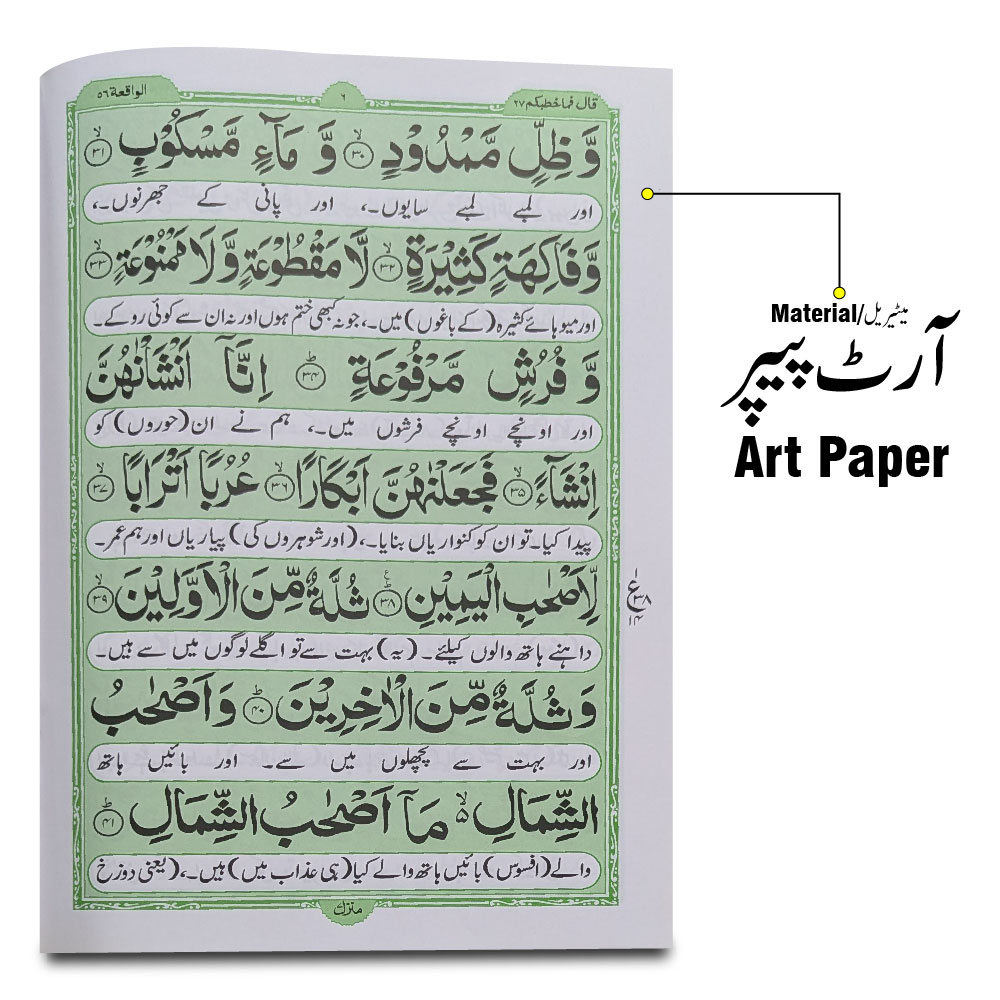 قال فما خطبكم ۲۷
۶
الواقعة ۵۶
وَّ ظِلٍّ مَّمْدُوْدٍ ۙ﴿۳۰﴾ وَّ مَآءٍ مَّسْكُوْبٍ ۙ﴿۳۱﴾
اور لمبے لمبے سایوں۔، اور پانی کے جھرنوں۔،
وَّ فَاكِهَةٍ كَثِيْرَةٍ ۙ﴿۳۲﴾ لَّا مَقْطُوْعَةٍ وَّ لَا مَمْنُوْعَةٍ ۙ﴿۳۳﴾
اور میوہائے کثیرہ (کے باغوں) میں۔، جو نہ کبھی ختم ہوں اور نہ ان سے کوئی روکے۔
وَّ فُرُشٍ مَّرْفُوْعَةٍ ؕ﴿۳۴﴾ اِنَّاۤ اَنْشَاْنٰهُنَّ
اور اونچے اونچے فرشوں میں۔، ہم نے ان (حوروں) کو
اِنْشَآءً ۙ﴿۳۵﴾ فَجَعَلْنٰهُنَّ اَبْكَارًا ۙ﴿۳۶﴾ عُرُبًا اَتْرَابًا ۙ﴿۳۷﴾
پیدا کیا۔ تو ان کو کنواریاں بنایا۔، (اور شوہروں کی) پیاریاں اور ہم عمر۔
لِّاَصْحٰبِ الْيَمِيْنِ ؕ﴿۳۸﴾ ثُلَّةٌ مِّنَ الْاَوَّلِيْنَ ۙ﴿۳۹﴾
ع ۳۸ ۱۴
داہنے ہاتھ والوں کیلئے۔ (یہ) بہت سے تو اگلے لوگوں میں سے ہیں۔
وَ ثُلَّةٌ مِّنَ الْاٰخِرِيْنَ ؕ﴿۴۰﴾ وَ اَصْحٰبُ
اور بہت سے پچھلوں میں سے۔ اور بائیں ہاتھ
الشِّمَالِ ۬ۙ۵ مَاۤ اَصْحٰبُ الشِّمَالِ ؕ﴿۴۱﴾
والے (افسوس) بائیں ہاتھ والے کیا (ہی عذاب میں) ہیں۔، (یعنی دوزخ
منزل
Material/میٹیریل
آرٹ پیپر
Art Paper